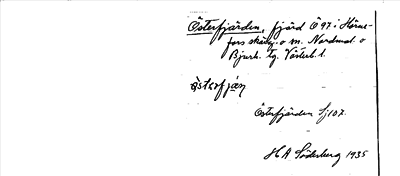 Österfjärden, fjärd Ö 97 i Hörne-
fors skärg. o m. Nordmal. o
Bjurh. tg. Västerb. l.
Österfjärden Sj 107.
H A Söderberg 1935